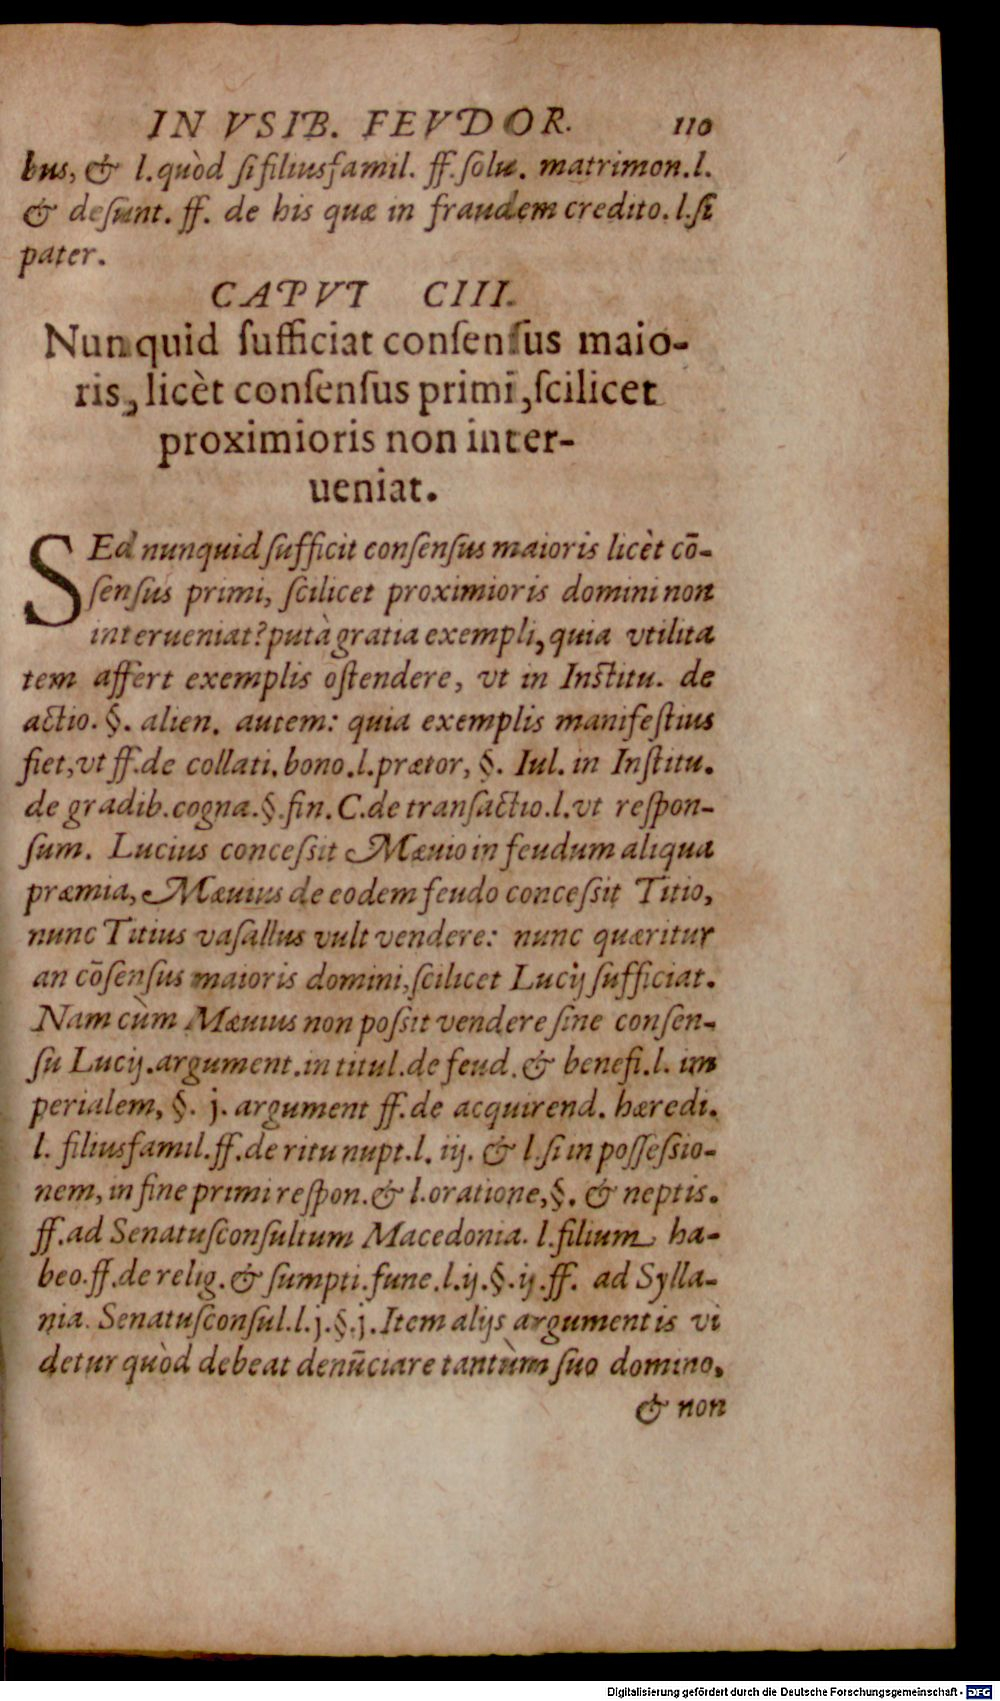 IN VSIB. FEVDOR. 110
bus, & l. quòd si filiusfamil. ff. solu. matrimon. l.
& desunt. ff. de his quæ in fraudem credito. l. si
pater.
CAPVT CIII.
Nunquid sufficiat consensus maio-
ris, licèt consensus primi, scilicet
proximioris non inter-
ueniat.
SEd nunquid sufficit consensus maioris licèt cō-
sensus primi, scilicet proximioris domini non
interueniat? putà gratia exempli, quia vtilita
tem affert exemplis ostendere, vt in Institu. de
actio. §. alien. autem: quia exemplis manifestius
fiet, vt ff. de collati. bono. l. prætor, §. Iul. in Institu.
de gradib. cogna. §. fin. C. de transactio. l. vt respon-
sum. Lucius concessit Mæuio in feudum aliqua
præmia, Mæuius de eodem feudo concessit Titio,
nunc Titius vasallus vult vendere: nunc quæritur
an cōsensus maioris domini, scilicet Lucij sufficiat.
Nam cùm Mæuius non possit vendere sine consen-
su Lucij. argument. in titul. de feud. & benefi. l. im
perialem, §. j. argument ff. de acquirend. hæredi.
l. filiusfamil. ff. de ritu nupt. l. iij. & l. si in possessio-
nem, in fine primi respon. & l. oratione, §. & neptis.
ff. ad Senatusconsultum Macedonia. l. filium ha-
beo. ff. de relig. & sumpti. fune. l. ij. §. ij. ff. ad Sylla-
nia. Senatusconsul. l. j. §. j. Item alijs argumentis vi
detur quòd debeat denūciare tantùm suo domino,
& non
Digitalisierung gefördert durch die Deutsche Forschungsgemeinschaft - DFG